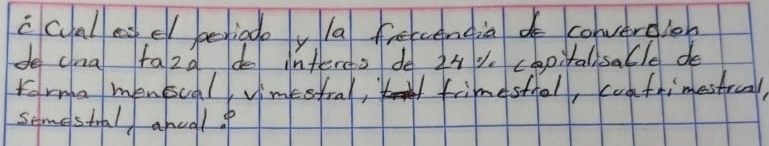 ¿Cual es el periodo y la frecuencia de conversion
de una taza de interes de 24% capitalisable de
forma mensual, vimestral, trimestral, cuatrimestrual,
semestral, anual?